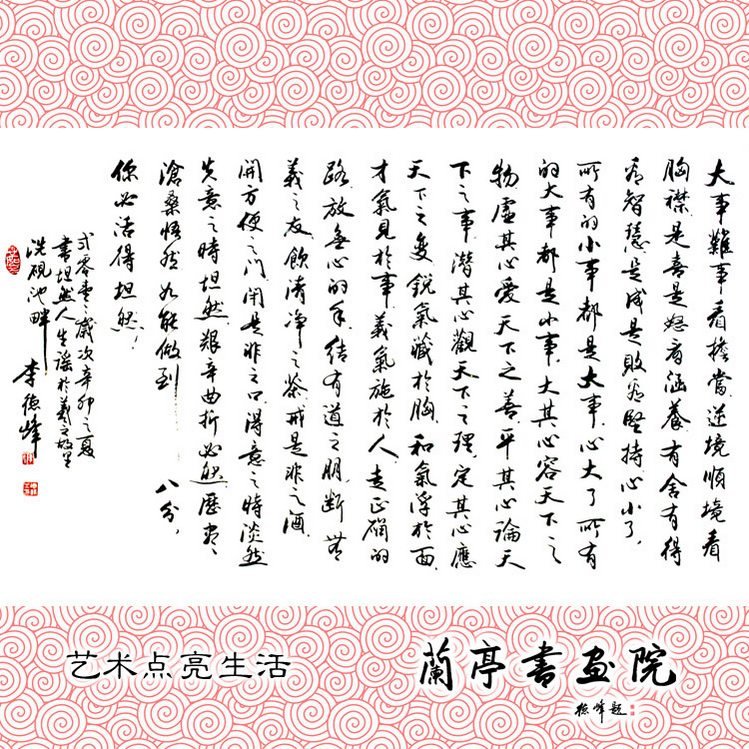 大事難事看擔當逆境順境看
胸襟是喜是怒看涵養有舍有得
看智慧是成是敗看堅持心小了
所有的小事都是大事心大了所有
的大事都是小事大其心容天下之
物虛其心愛天下之善平其心論天
下之事潛其心觀天下之理定其心應
天下之變銳氣藏於胸和氣浮於面
才氣見於事義氣施於人走正確的
路放無心的手結有道之朋斷無
義之友飲清淨之茶戒是非之酒
開方便之門閉是非之口得意之時淡然
失意之時坦然艱辛曲折必然歷盡
滄桑悟然如能做到八分，
你必活得坦然！
弍零壹壹歲次辛卯之夏
書坦然人生謠於羲之故里
洗硯池畔 李德峰
艺术点亮生活
蘭亭書画院
德峰题